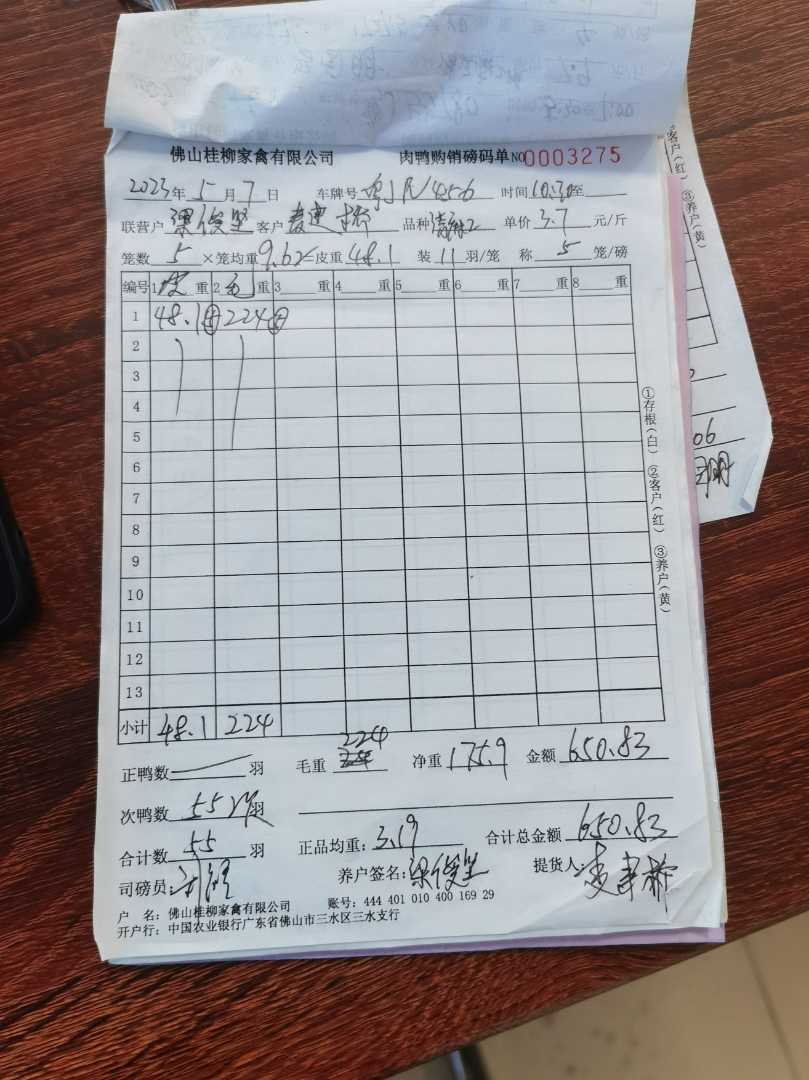 佛山桂柳家禽有限公司 肉鸭购销磅码单 NO 0003275
2023年 5月 7日 车牌号 时间 10.30 至
联营户 客户 品种 单价 3.7 元/斤
笼数 5 ×笼均重 9.62 =皮重 48.1 装 11 羽/笼 称 5 笼/磅
编号 1 皮 重 2 毛 重 3 重 4 重 5 重 6 重 7 重 8 重
1 48.1 224
2
3
4
5
6
7
8
9
10
11
12
13
小计 48.1 224
正鸭数 羽 毛重 224 净重 175.9 金额 650.83
次鸭数 55次 羽
合计数 55 羽 正品均重: 3.19 合计总金额 650.83
司磅员: 养户签名: 提货人:
户 名: 佛山桂柳家禽有限公司 账号: 444 401 010 400 169 29
开户行: 中国农业银行广东省佛山市三水区三水支行
①存根(白) ②客户(红) ③养户(黄)
客户(红) ③养户(黄)
06